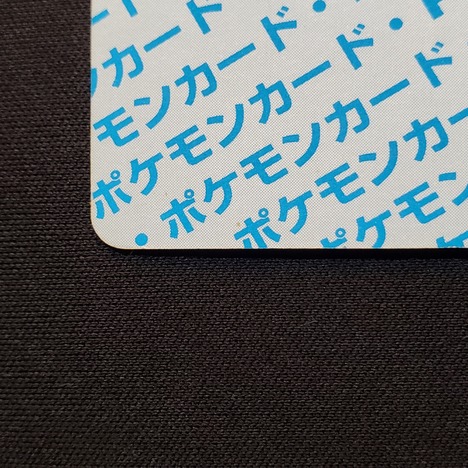 ード
ンカード
モンカード・
ポケモンカード・
・ポケモンカード
ポケモンカー
ポケモン